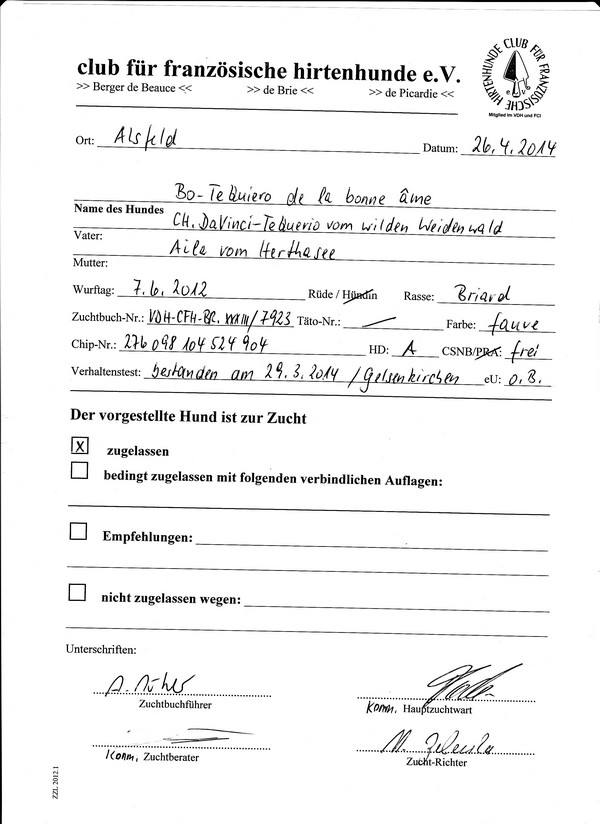 club für französische hirtenhunde e.V.
>> Berger de Beauce << >> de Brie << >> de Picardie <<
HIRTENHUNDE CLUB FÜR FRANZÖSISCHE
e.V.
Mitglied im VDH und FCI
Ort: Alsfeld Datum: 26.4.2014
Bo-TeQuiero de la bonne âme
Name des Hundes
CH. DaVinci-TeQuerio vom wilden Weidenwald
Vater:
Aila vom Herthasee
Mutter:
Wurftag: 7.6.2012 Rüde / Hündin Rasse: Briard
Zuchtbuch-Nr.: VDH-CFH-BR. XXXIII/7923 Täto-Nr.: Farbe: fauve
Chip-Nr.: 276 098 104 524 904 HD: A CSNB/PRA: frei
Verhaltenstest: bestanden am 29.3.2014 / Gelsenkirchen eU: o.B.
Der vorgestellte Hund ist zur Zucht
X zugelassen
bedingt zugelassen mit folgenden verbindlichen Auflagen:
Empfehlungen:
nicht zugelassen wegen:
Unterschriften:
Zuchtbuchführer
Komm, Hauptzuchtwart
Komm, Zuchtberater
Zucht-Richter
ZZL 2012.1